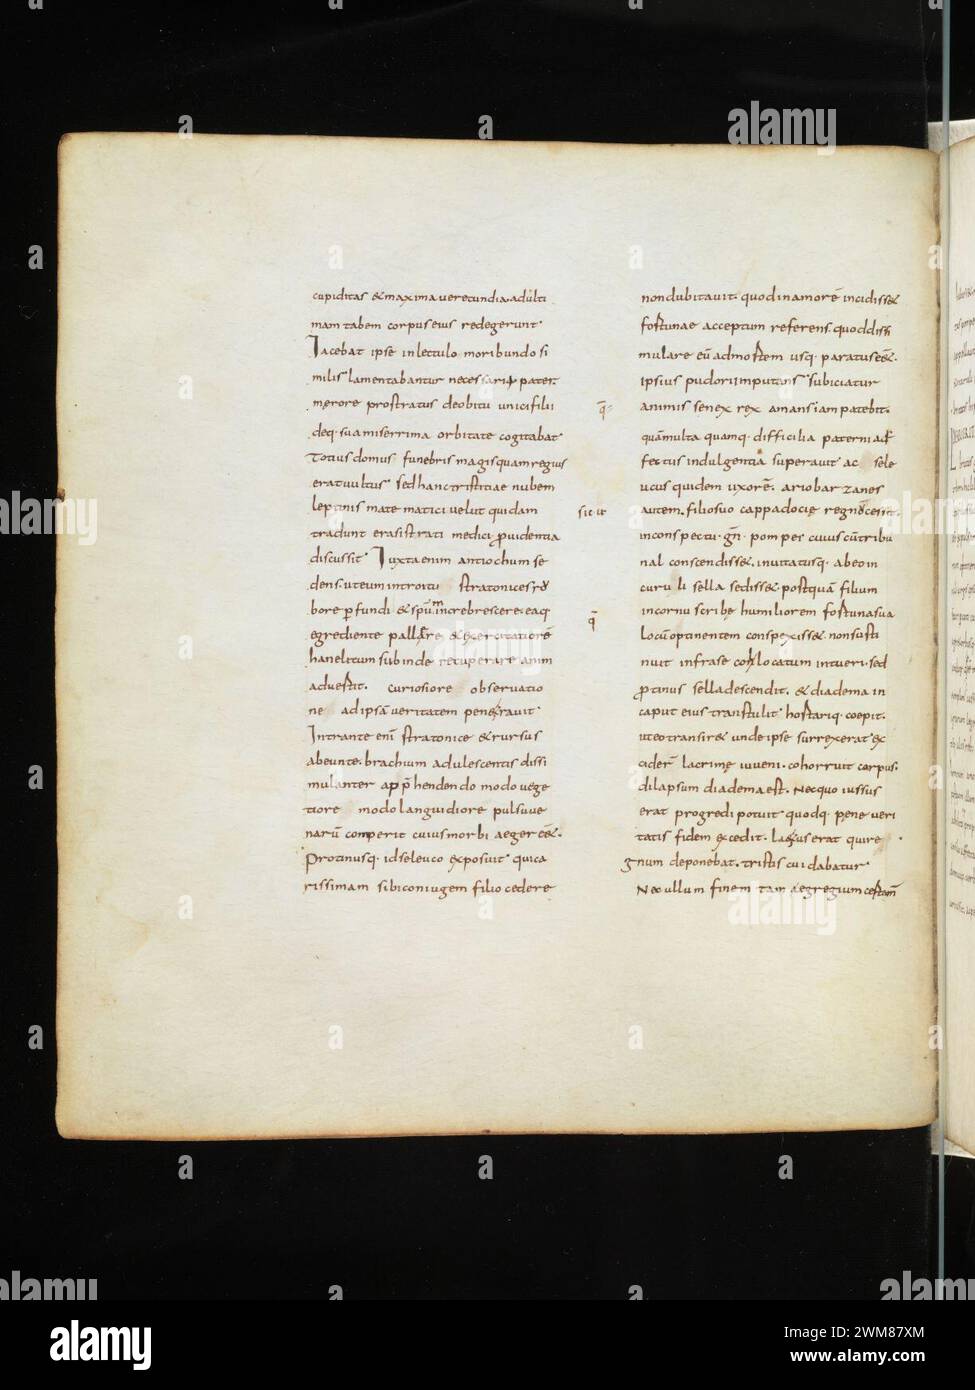 cupiditas & maxima verecundia. adulti
mam tabem corpus eius redegerunt
Iacebat ipse in lectulo moribundo si
milis lamentabantur necessarii pater.
merore prostratus de obitu unici filii
deq. sua miserrima orbitate cogitabat
Totius domus funebris magis quam regius
erat vultus sed hanc tristitiae nubem
leptinis mate matici vel ut quidam
tradunt erasistrati medici ꝓuidentia
discussit Iuxta enim antiochum se
dens. ut eum introitu stratonices
bore ꝑfundi & spũ increbrescere. eaq
egrediente & excitatiorẽ
hanelitum subinde recuperare. anim
advertit. curiosiore observatio
ne ad ipsã veritatem penetravit
Intrante enĩ stratonice & rursus
abeunte. brachium adulescentis dissi
mulanter app̄hendendo modo vege
tiore modo languidiore pulsu ve
narũ comperit cuius morbi aeger eẽ&.
Protinusq. id seleuco exposuit qui ca
rissimam sibi coniugem filio cedere
q̄
sic ut
q̄
non dubitavit. quod in amorẽ incidiss&
fortunae acceptum referens. quod dissi
mulare eũ ad mortem usq. paratus ess&.
ipsius pudori imputans subiciatur
animis senex rex amans iam patebit.
quã multa quamq. difficilia paterni adf
fectus indulgentia superavit ac sele
ucus quidem uxorẽ. ariobarzanes
autem. filio suo cappadocie regnũ cessit.
in conspectu. gñ. pompei cuius cũ tribu
nal conscendiss&. invitatusq. ab eo in
curuli sella sediss&. postquã filium
in cornu scribe humiliorem fortuna sua
locũ optinentem conspexiss&. non susti
nuit infra se collocatum intueri. sed
ꝓtinus sella descendit. & diadema in
caput eius transtulit hortariq. coepit.
ut eo transir& unde ipse surrexerat ex
ciderũ lacrime iuveni. cohorruit corpus.
dilapsum diadema est. Nec quo iussus
erat progredi potuit quodq. pene veri
tatis fidem excedit. la&us erat qui re
gnum deponebat. tristis cui dabatur
Nec ullum finem tam egregium certam̄
alamy
Image ID: 2WM87XM
www.alamy.com